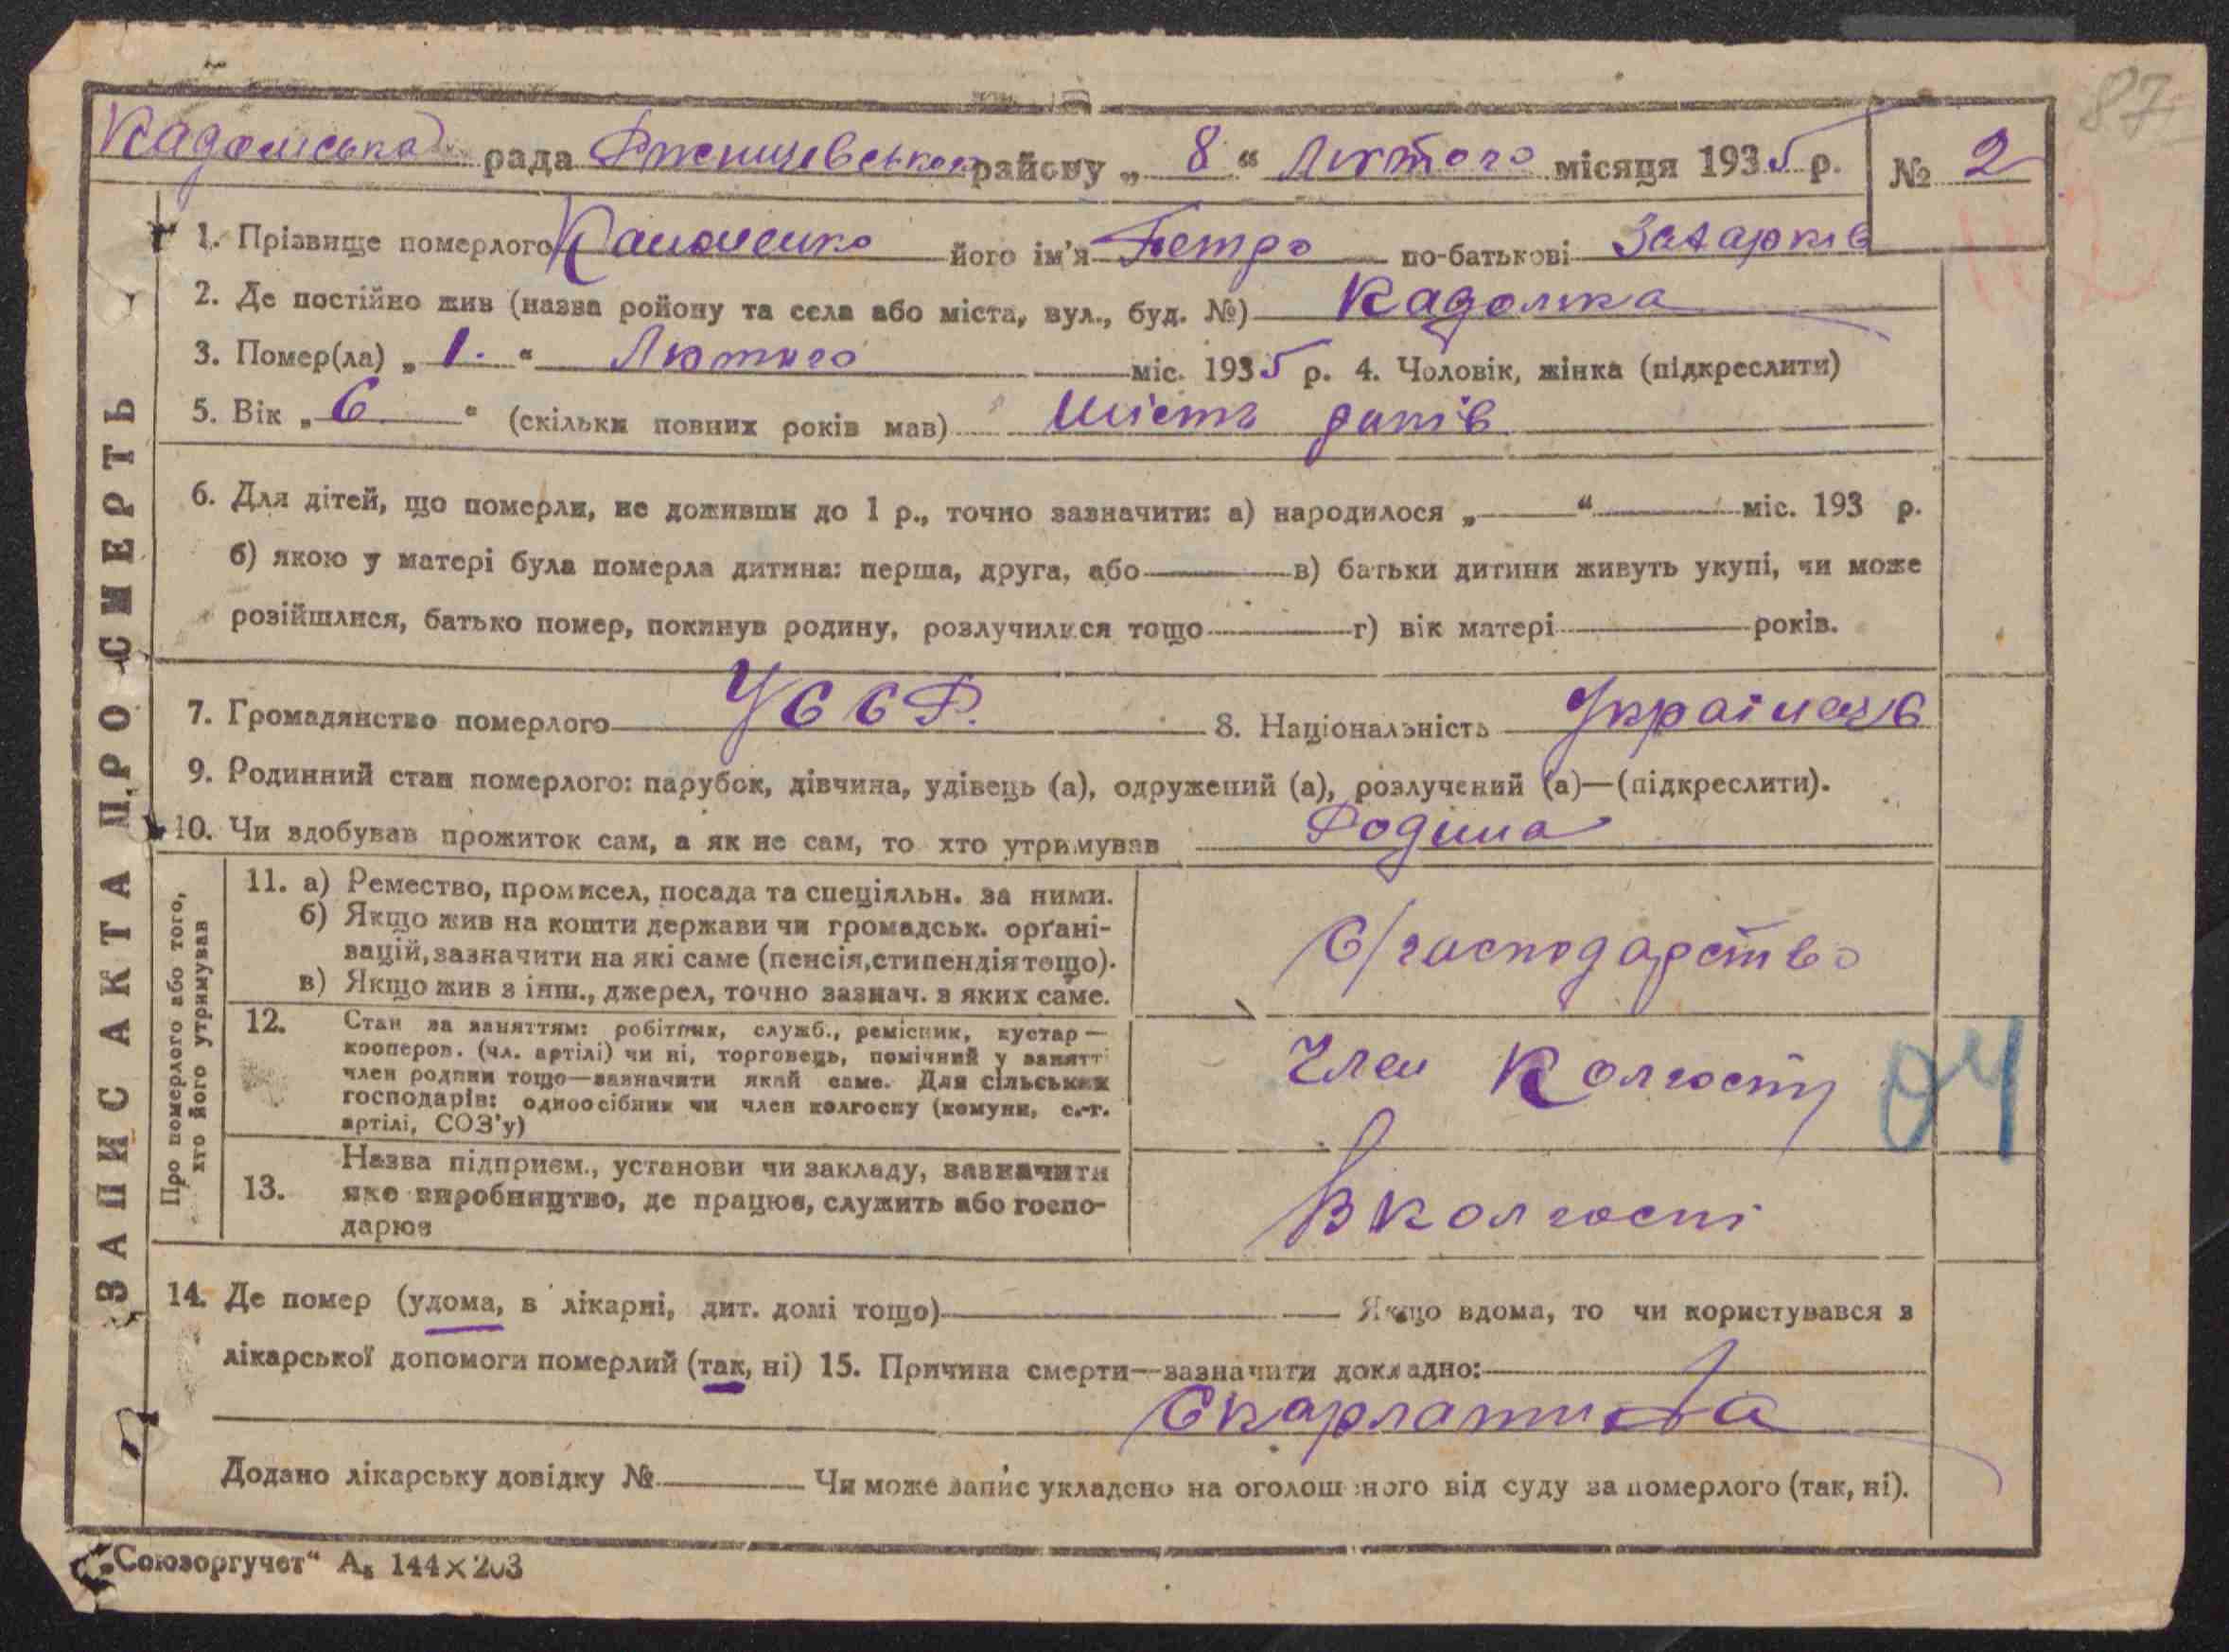 87
Кадомська рада Ржищевського району „ 8 “ Лютого місяця 1935 р. № 2
1. Прізвище померлого його ім'я Петро по-батькові Захарків
2. Де постійно жив (назва ройону та села або міста, вул., буд. №) Кадомка
3. Помер(ла) „ 1. “ Лютого міс. 1935 р. 4. Чоловік, жінка (підкреслити)
5. Вік „ 6 “ (скільки повних років мав) Шість років
6. Для дітей, що померли, не доживши до 1 р., точно зазначити: а) народилося „ “ міс. 193 р.
б) якою у матері була померла дитина: перша, друга, або в) батьки дитини живуть укупі, чи може
розійшлися, батько помер, покинув родину, розлучилися тощо г) вік матері років.
7. Громадянство померлого УССР. 8. Національність Українець
9. Родинний стан померлого: парубок, дівчина, удівець (а), одружений (а), розлучений (а)—(підкреслити).
10. Чи здобував прожиток сам, а як не сам, то хто утримував Родина
ЗАПИС АКТА ПРО СМЕРТЬ
Про померлого або того,
хто його утримував
11. а) Ремество, промисел, посада та спеціяльн. за ними.
б) Якщо жив на кошти держави чи громадськ. орґані-
зацій, зазначити на які саме (пенсія, стипендія тощо).
в) Якщо жив з інш., джерел, точно зазнач. з яких саме.
С/господарство
12. Стан за заняттям: робітник, служб., ремісник, кустар —
кооперов. (чл. артілі) чи ні, торговець, помічний у занятті
член родини тощо—зазначити який саме. Для сільських
господарів: одноосібник чи член колгоспу (комуни, с.-г.
артілі, СОЗ'у)
Член Колгоспу
04
13. Назва підприєм., установи чи закладу, зазначити
яке виробництво, де працює, служить або госпо-
дарює
В колгоспі
14. Де помер (удома, в лікарні, дит. домі тощо) Якщо вдома, то чи користувався з
лікарської допомоги померлий (так, ні) 15. Причина смерти—зазначити докладно:
Скарлатина
Додано лікарську довідку № Чи може запис укладено на оголошеного від суду за померлого (так, ні).
„Союзоргучет“ А₅ 144×203